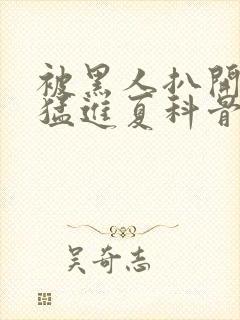 被黑人扒開
猛進夏科骨
吴奇志